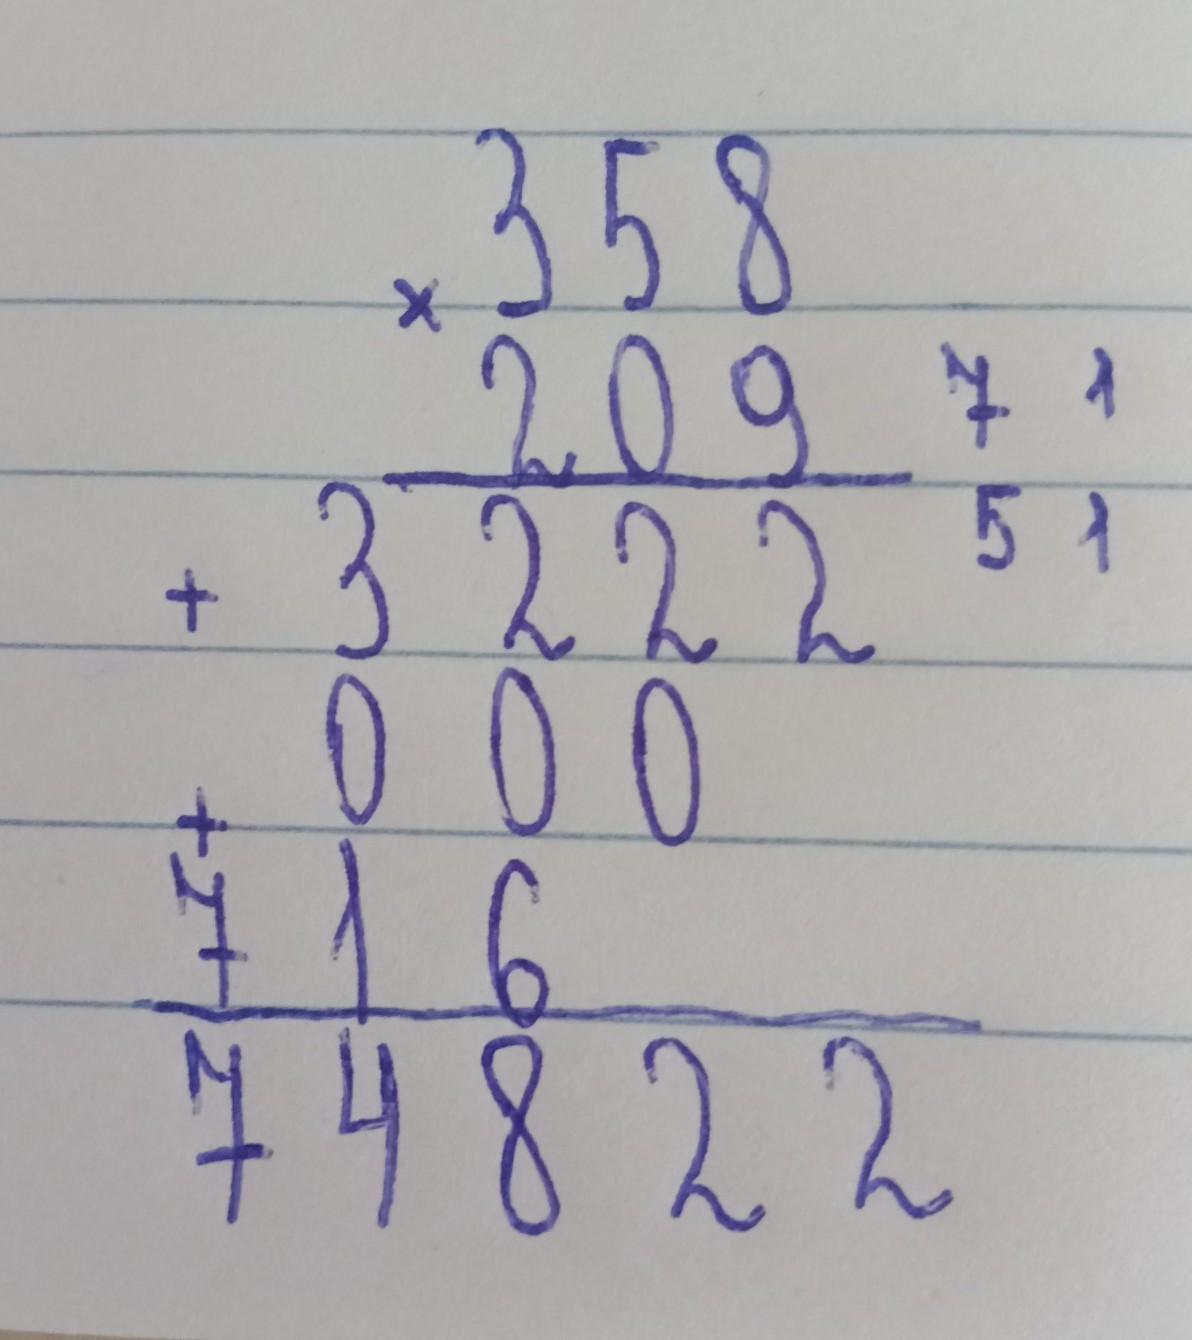 358
×
209 7 1
3222 5 1
+
000
+
716
74822